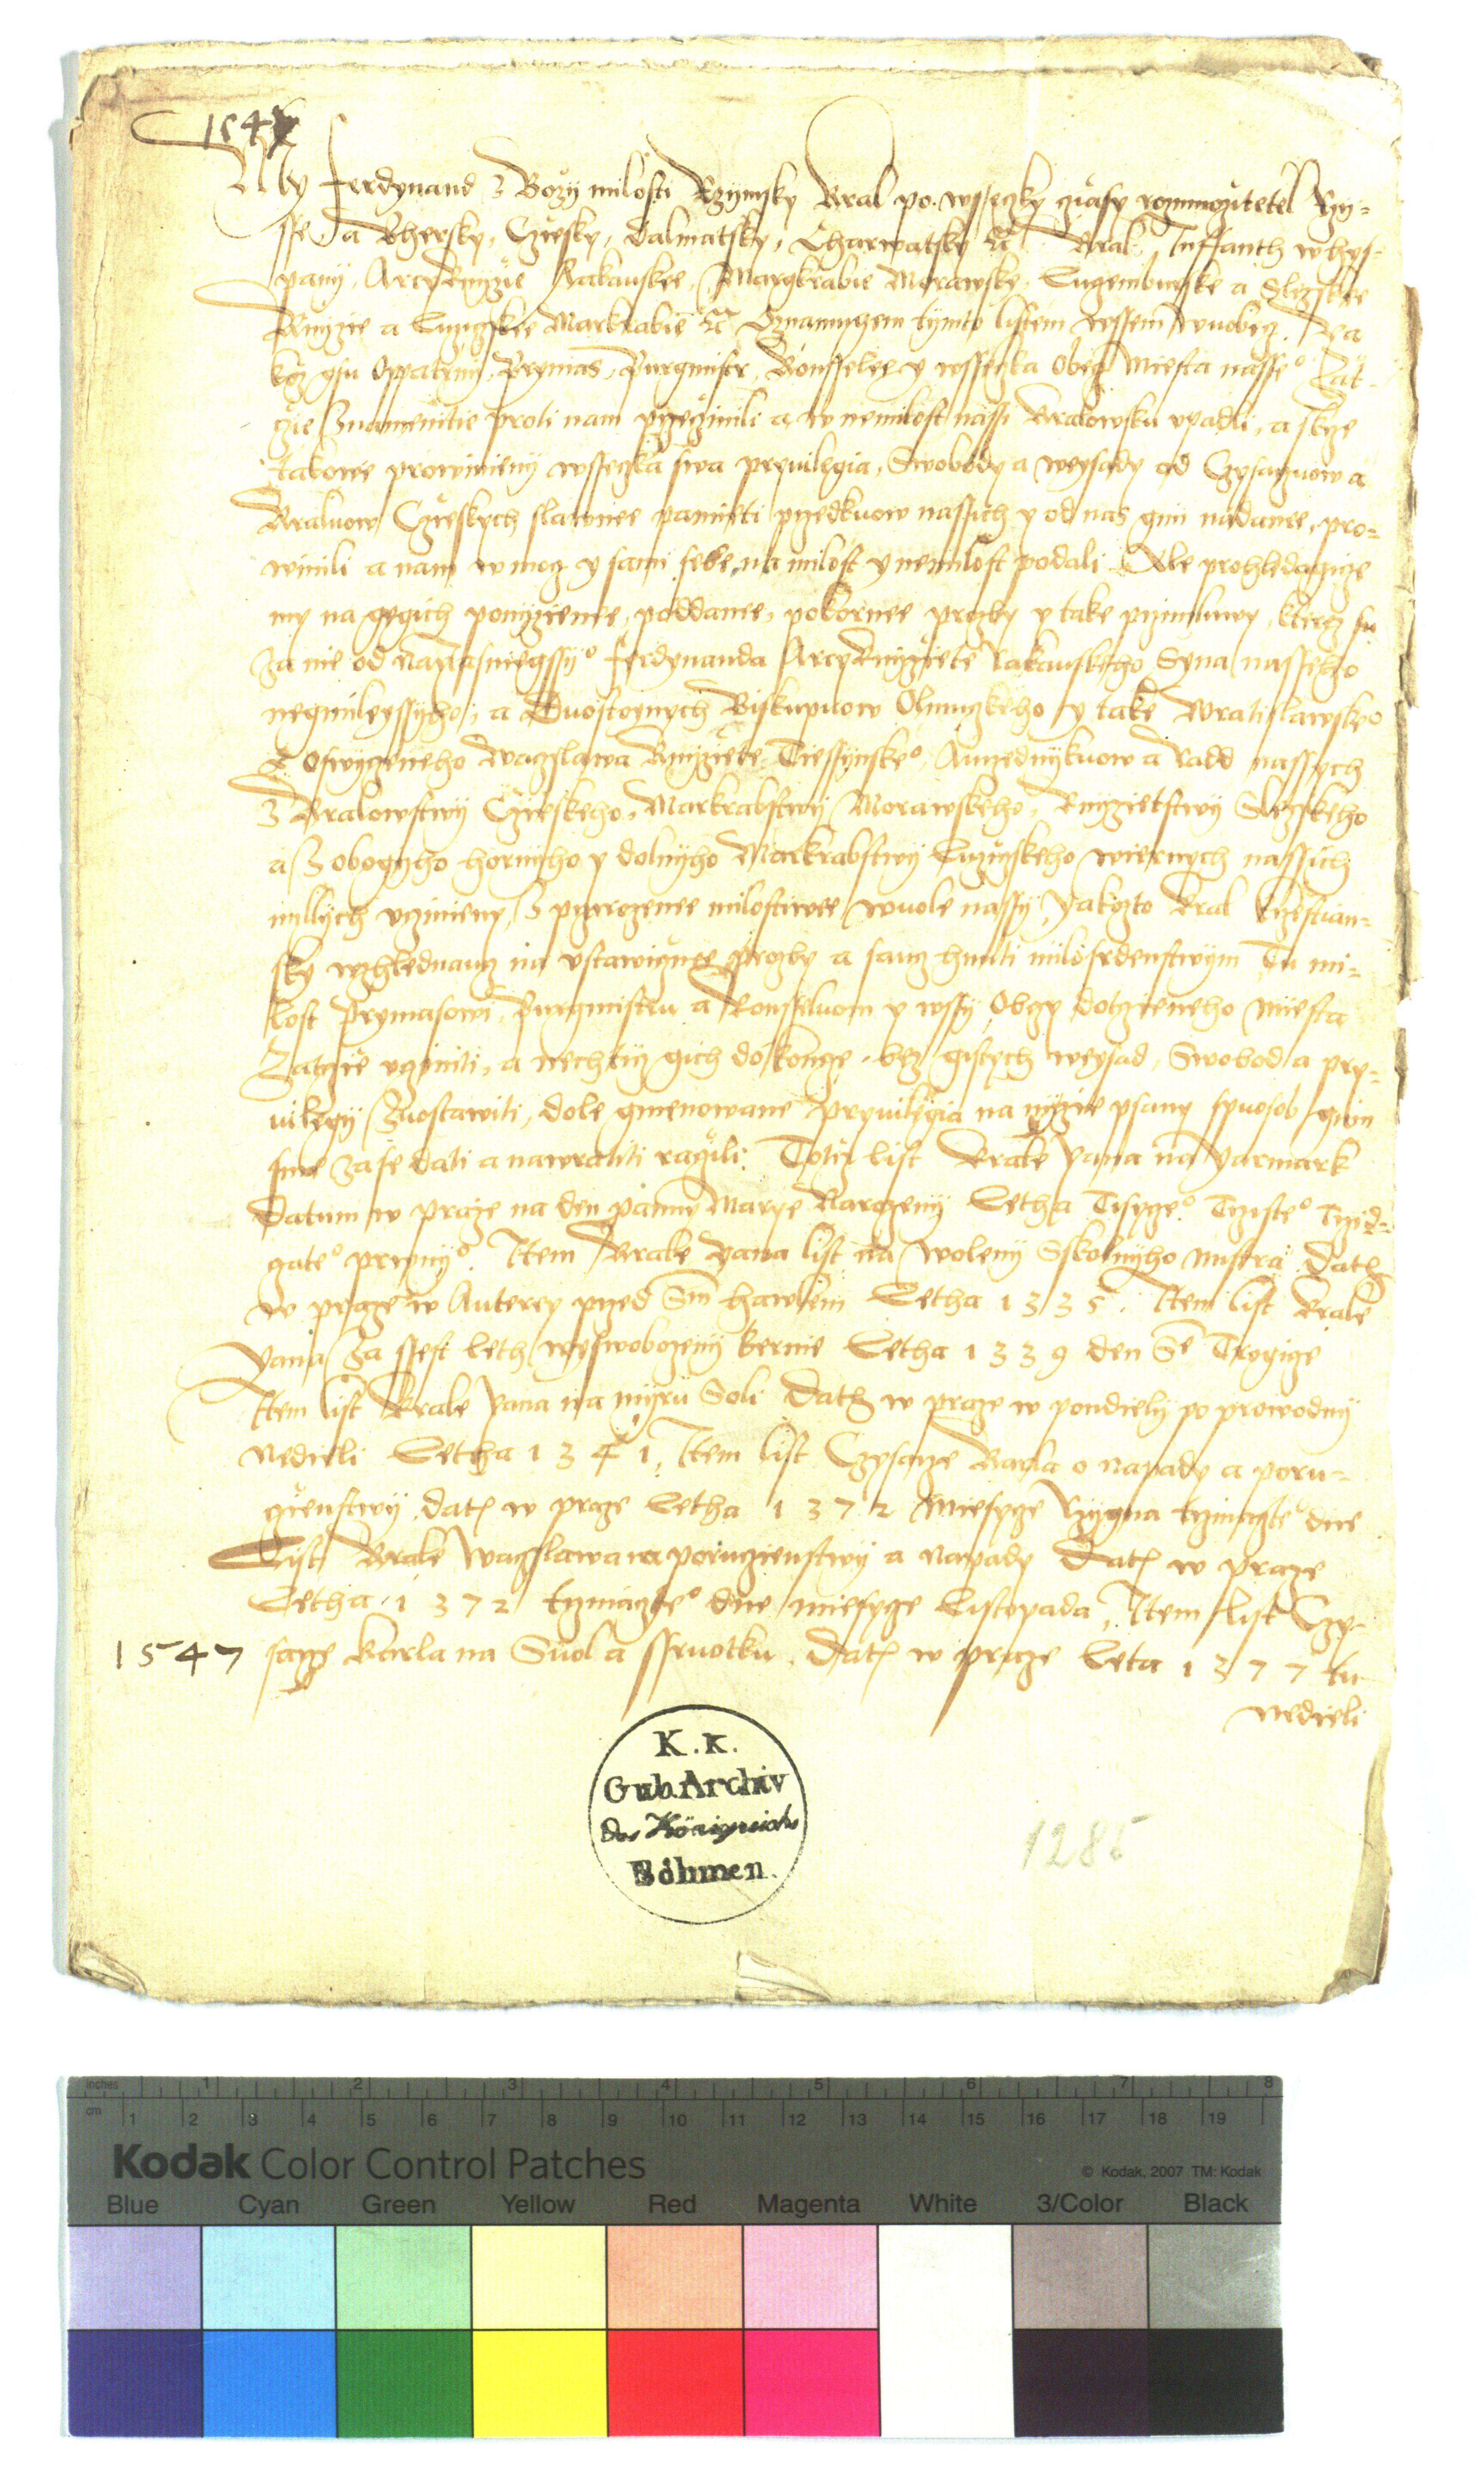 1547
My Ferdynand z Bozy milosti Rzymsky Kral po wsseczky czasy rozmnozitel Rzy=
sse a Vhersky, Cziesky, Dalmatsky, Charwatsky &c. Kral, Inffanth w hys-
pany, Arczyknize Rakauskee, Margkrabie Morawske, Luczemburske a Slezskee
Knize a Luziczskee Markrabie &c Oznamugem tymto listem wssem wuobecz. Ya
koz gsu Oppatrny, Prymas, Purgmistr, Konsselee y wssecka Obecz Miesta nasseo Zat-
czie znamenitie proti nam przeczinili a w nemilost nassi Kralowsku vpadli, a skrze
takowe prowinieny wssecka swa pryuilegia, Swobody a weysady od Czysarzuow a
Kraluow Czieskych slawnee pamieti przedkuow nassich y od nas gim nadanee, pro=
winili a nam w mocz y sami sebe na milost y nemilost podali. Ale prohledagicze
my na gegich ponizienee, poddanee, pokornee prozby y take przimluwy, kterez su
za nie od nayiasniegssyo Ferdynanda Arczyknizete Rakauskeho Syna nasseho
negmileyssyho, a Duostoynych Biskupuow Olmuczkeho y take Wratislawskeo
z Oswyczeneho Waczslawa Knizete Tiessynskeo, Aurzednykuow a Radd nassych
z Kralowstwy Czieskeho, Markrabstwy Morawskeho, Knizietstwy Slezskeho
a z obogyho hornyho y dolnyho Markrabstwy Luziczskeho wiernych nassich
milych vczinieny, z przirozenee milostiwee wuole nassy, yakozto Kral krzestian=
sky wzhlednaucz na vstawicznee prozby a saucz hnuti milosrdenstwym Tu mi=
lost Prymasowi, Purgmistru a Konsseluom y wssy Obczy dotczieneho Miesta
Zatczie vcziniti, a nechticz gich dokoncze bez gistych weysad, Swobod a pry=
uilegy zuostawiti, dole gmenowane pryuilegia na nyzie psany spuosob gim
sme zase dati a nawratiti raczili. Totiz list Krale Yana na Yarmark
Datum w Praze na den panny Marye Narozeny Letha Tisyczeo Trzisteo Trzid=
czateo prwnyo. Item Krale Yana list na woleny Sskolnyho mistra Dath
w Praze w Auterey przed Sm hawlem Letha 1335. Item list Krale
Yana za ssest leth wyswobozeny bernie Letha 1339 den Se Trogicze
Item list Krale Yana na myru Soli Dath w Praze w pondiely po prowodny
Nedieli Letha 1341. Item list Czysarze Karla o napady a poru=
czienstwy dath w Praze Letha 1372 Miesycze Rzygna trzinaczteo dne
List Krale Waczslawa na poruczienstwy a Napady Dath w Praze
Letha 1372 trzinaczteo dne miesycze Listopada, Item list Czy-
1547 sarze Karla na Suol a ssruotku. Dath w Praze Leta 1377 tu
nedieli
K. K.
Gub. Archiv
des Königreichs
Böhmen.
1285
inches 1 2 3 4 5 6 7 8
cm 1 2 3 4 5 6 7 8 9 10 11 12 13 14 15 16 17 18 19
Kodak Color Control Patches © Kodak, 2007 TM: Kodak
Blue Cyan Green Yellow Red Magenta White 3/Color Black